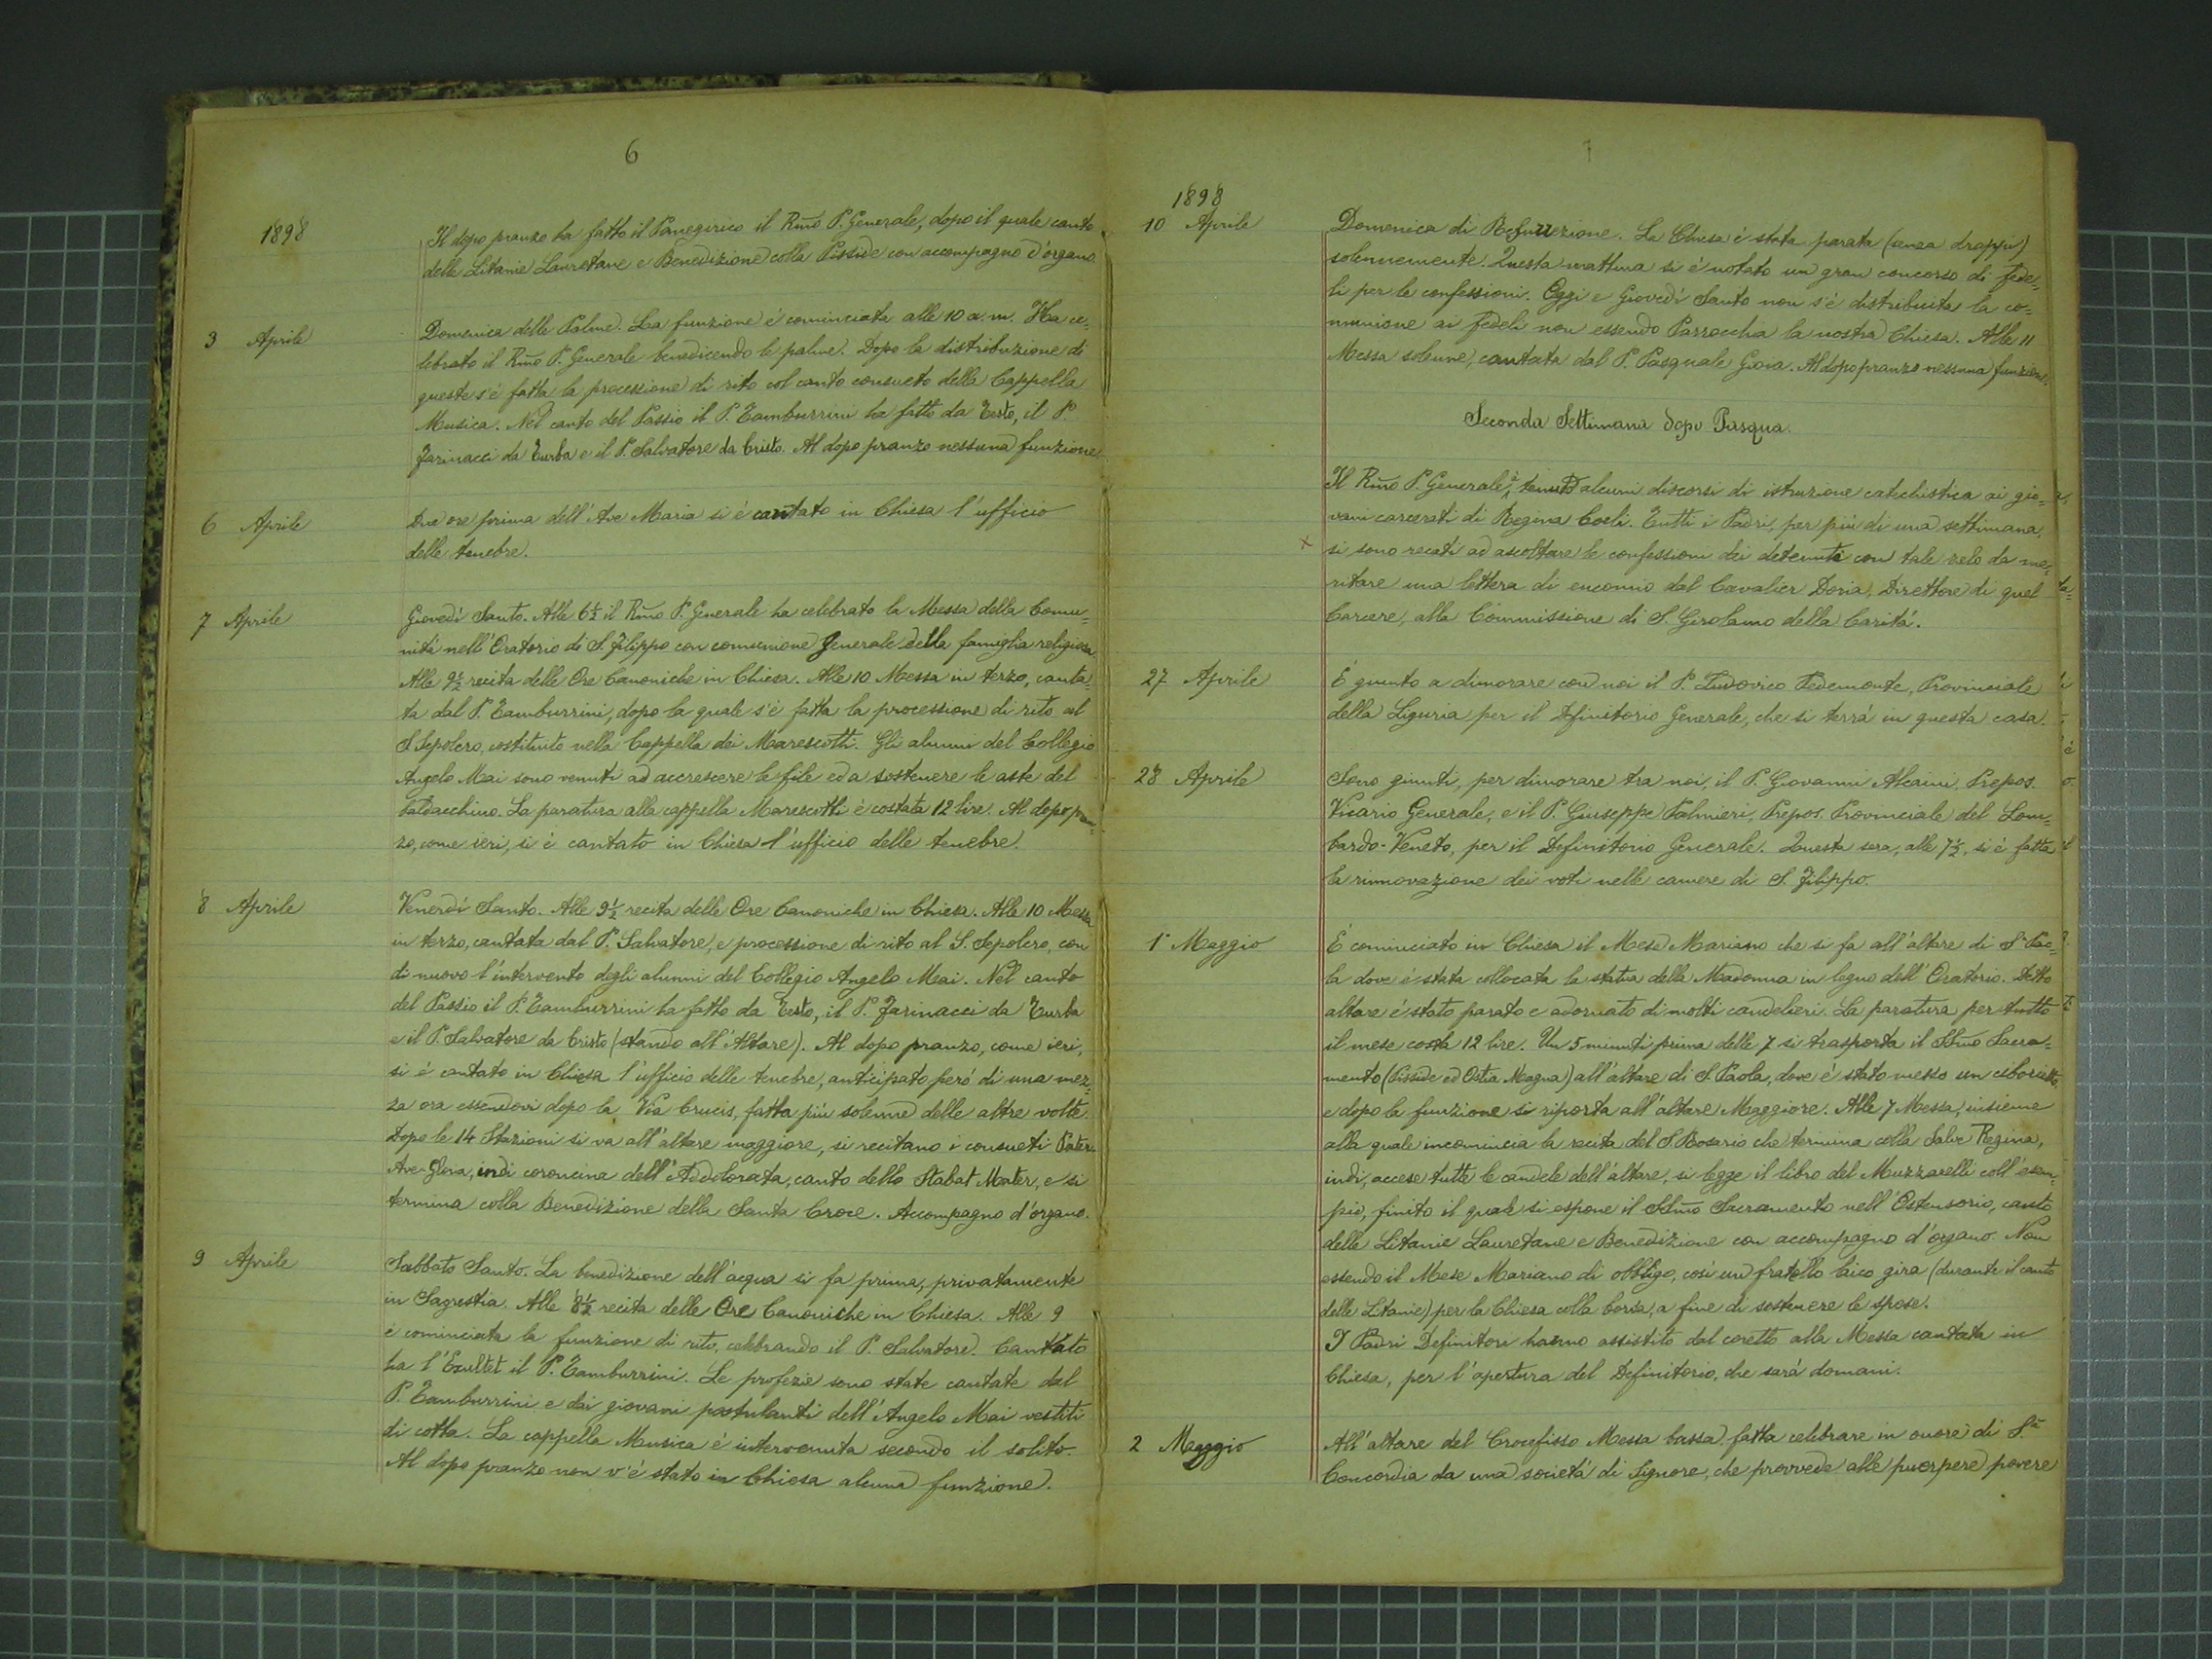 6
1898
Il dopo pranzo ha fatto il Panegirico il Rmo P. Generale, dopo il quale canto
delle Litanie Lauretane e Benedizione colla Pisside con accompagno d'organo.
3 Aprile
Domenica delle Palme. La funzione è cominciata alle 10 a. m. Ha ce=
lebrato il Rmo P. Generale benedicendo le palme. Dopo la distribuzione di
queste s'è fatta la processione di rito col canto consueto della Cappella
Musica. Nel canto del Passio il P. Tamburrini ha fatto da Testo, il P.
Farinacci da Turba e il P. Salvatore da Cristo. Al dopo pranzo nessuna funzione
6 Aprile
Due ore prima dell'Ave Maria si è cantato in Chiesa l'ufficio
delle tenebre.
7 Aprile
Giovedì Santo. Alle 6½ il Rmo P. Generale ha celebrato la Messa della Comu=
nità nell'Oratorio di S. Filippo con comunione Generale della famiglia religiosa
Alle 9½ recita delle Ore Canoniche in Chiesa. Alle 10 Messa in terzo, canta=
ta dal P. Tamburrini, dopo la quale s'è fatta la processione di rito al
S. Sepolcro, costituito nella Cappella dei Marescotti. Gli alunni del Collegio
Angelo Mai sono venuti ad accrescere le file ed a sostenere le aste del
baldacchino. La paratura alla cappella Marescotti è costata 12 lire. Al dopo pran=
zo, come ieri, si è cantato in Chiesa l'ufficio delle tenebre.
8 Aprile
Venerdì Santo. Alle 9½ recita delle Ore Canoniche in Chiesa. Alle 10 Messa
in terzo, cantata dal P. Salvatore, e processione di rito al S. Sepolcro, con
di nuovo l'intervento degli alunni del Collegio Angelo Mai. Nel canto
del Passio il P. Tamburrini ha fatto da Testo, il P. Farinacci da Turba
e il P. Salvatore da Cristo (stando all'Altare). Al dopo pranzo, come ieri,
si è cantato in Chiesa l'ufficio delle tenebre, anticipato però di una mez=
za ora essendovi dopo la Via Crucis, fatta più solenne delle altre volte.
Dopo le 14 Stazioni si va all'altare maggiore, si recitano i consueti Pater-
Ave-Gloria, indi coroncina dell'Addolorata, canto dello Stabat Mater, e si
termina colla Benedizione della Santa Croce. Accompagno d'organo.
9 Aprile
Sabbato Santo. La benedizione dell'acqua si fa prima, privatamente
in Sagrestia. Alle 8½ recita delle Ore Canoniche in Chiesa. Alle 9
è cominciata la funzione di rito, celebrando il P. Salvatore. Cantato
ha l'Exultet il P. Tamburrini. Le profezie sono state cantate dal
P. Tamburrini e dai giovani postulanti dell'Angelo Mai vestiti
di cotta. La cappella Musica è intervenuta secondo il solito.
Al dopo pranzo non v'è stato in Chiesa alcuna funzione.
7
1898
10 Aprile
Domenica di Resurrezione. La Chiesa è stata parata (senza drappi)
solennemente. Questa mattina si è notato un gran concorso di fede=
li per le confessioni. Oggi e Giovedì Santo non s'è distribuita la co=
munione ai fedeli non essendo Parrocchia la nostra Chiesa. Alle 11
Messa solenne, cantata dal P. Pasquale Gioia. Al dopo pranzo nessuna funzione.
Seconda Settimana dopo Pasqua.
Il Rmo P. Generale à tenuto alcuni discorsi di istruzione catechistica ai gio=
vani carcerati di Regina Coeli. Tutti i Padri, per più di una settimana,
x si sono recati ad ascoltare le confessioni dei detenuti con tale zelo da me=
ritare una lettera di encomio dal Cavalier Doria, Direttore di quel
Carcere, alla Commissione di S. Girolamo della Carità.
27 Aprile
È giunto a dimorare con noi il P. Ludovico Pedemonte, Provinciale
della Liguria per il Definitorio Generale, che si terrà in questa casa.
28 Aprile
Sono giunti, per dimorare tra noi, il P. Giovanni Alcaini, Prepos.
Vicario Generale, e il P. Giuseppe Palmieri, Prepos. Provinciale del Lom=
bardo-Veneto, per il Definitorio Generale. Questa sera, alle 7½, si è fatta
la rinnovazione dei voti nelle camere di S. Filippo.
1° Maggio
È cominciato in Chiesa il Mese Mariano che si fa all'altare di Sa Pao=
la dove è stata collocata la statua della Madonna in legno dell'Oratorio. Detto
altare è stato parato e adornato di molti candelieri. La paratura per tutto
il mese costa 12 lire. Un 5 minuti prima delle 7 si trasporta il SSmo Sacra=
mento (Pisside ed Ostia Magna) all'altare di S. Paola, dove è stato messo un ciborietto,
e dopo la funzione si riporta all'altare Maggiore. Alle 7 Messa, insieme
alla quale incomincia la recita del S. Rosario che termina colla Salve Regina,
indi, accese tutte le candele dell'altare, si legge il libro del Muzzarelli coll'esem=
pio, finito il quale si espone il SSmo Sacramento nell'Ostensorio, canto
delle Litanie Lauretane e Benedizione con accompagno d'organo. Non
essendo il Mese Mariano di obbligo, così un fratello laico gira (durante il canto
delle Litanie) per la Chiesa colla borsa, a fine di sostenere le spese.
I Padri Definitori hanno assistito dal coretto alla Messa cantata in
Chiesa, per l'apertura del Definitorio, che sarà domani.
2 Maggio
All'altare del Crocefisso Messa bassa fatta celebrare in onore di Sa
Concordia da una società di Signore, che provvede alle puerpere povere